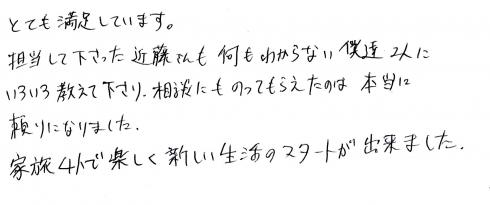 とても満足しています。
担当して下さった近藤さんも何もわからない僕達2人に
いろいろ教えて下さり、相談にものってもらえたのは本当に
頼りになりました.
家族4人で楽しく新しい生活のスタートが出来ました.